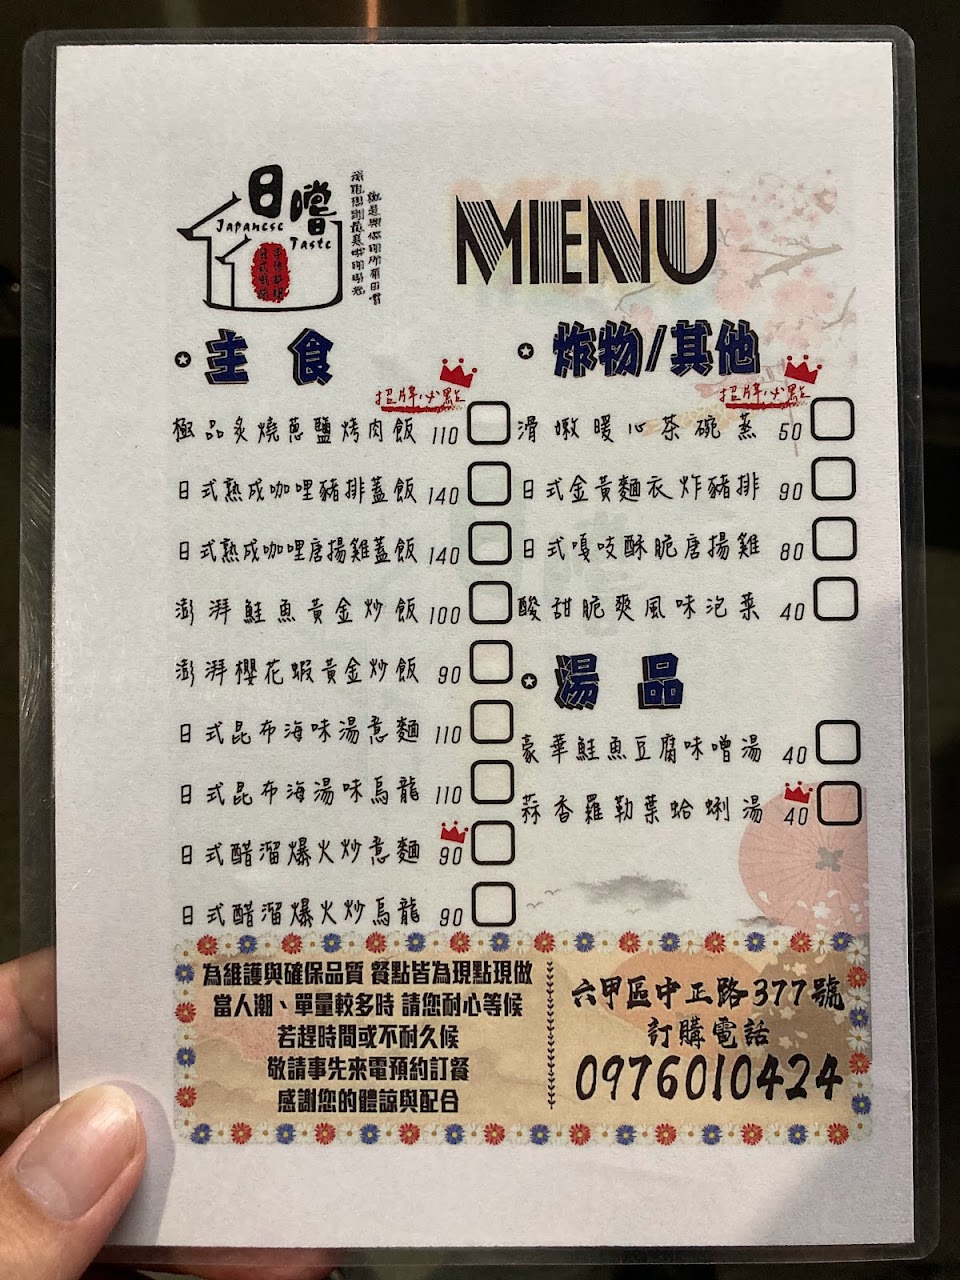 日嚐
Japanese
Taste
就是與你的所有日嚐
MENU
主食
招牌必點
極品炙燒蔥鹽烤肉飯 110
日式熟成咖哩豬排蓋飯 140
日式熟成咖哩唐揚雞蓋飯 140
澎湃鮭魚黃金炒飯 100
澎湃櫻花蝦黃金炒飯 90
日式昆布海味湯意麵 110
日式昆布海湯味烏龍 110
日式醋溜爆火炒意麵 90
日式醋溜爆火炒烏龍 90
炸物/其他
招牌必點
滑嫩暖心茶碗蒸 50
日式金黃麵衣炸豬排 90
日式嘎吱酥脆唐揚雞 80
酸甜脆爽風味泡菜 40
湯品
豪華鮭魚豆腐味噌湯 40
蒜香羅勒葉蛤蜊湯 40
為維護與確保品質 餐點皆為現點現做
當人潮、單量較多時 請您耐心等候
若趕時間或不耐久候
敬請事先來電預約訂餐
感謝您的體諒與配合
六甲區中正路377號
訂購電話
0976010424